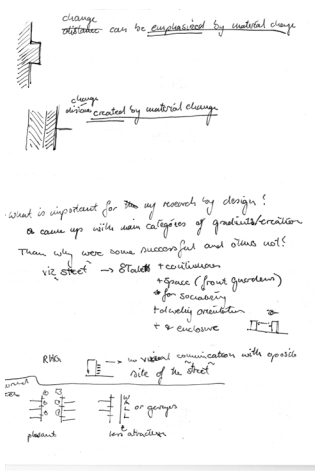 change
distance can be emphasized by material change
change
distance created by material change
· What is important for my research by design?
came up with main categories of gradients/creation
Then why were some successful and others not?
viz "street" → + continuous
+ space (front guerdens)
for sociability
+ dwelling orientation
+ enclosure
RHG
--→ no visual communication with oposite
side of the "street"
WALL
or garages
pleasant
less attractive